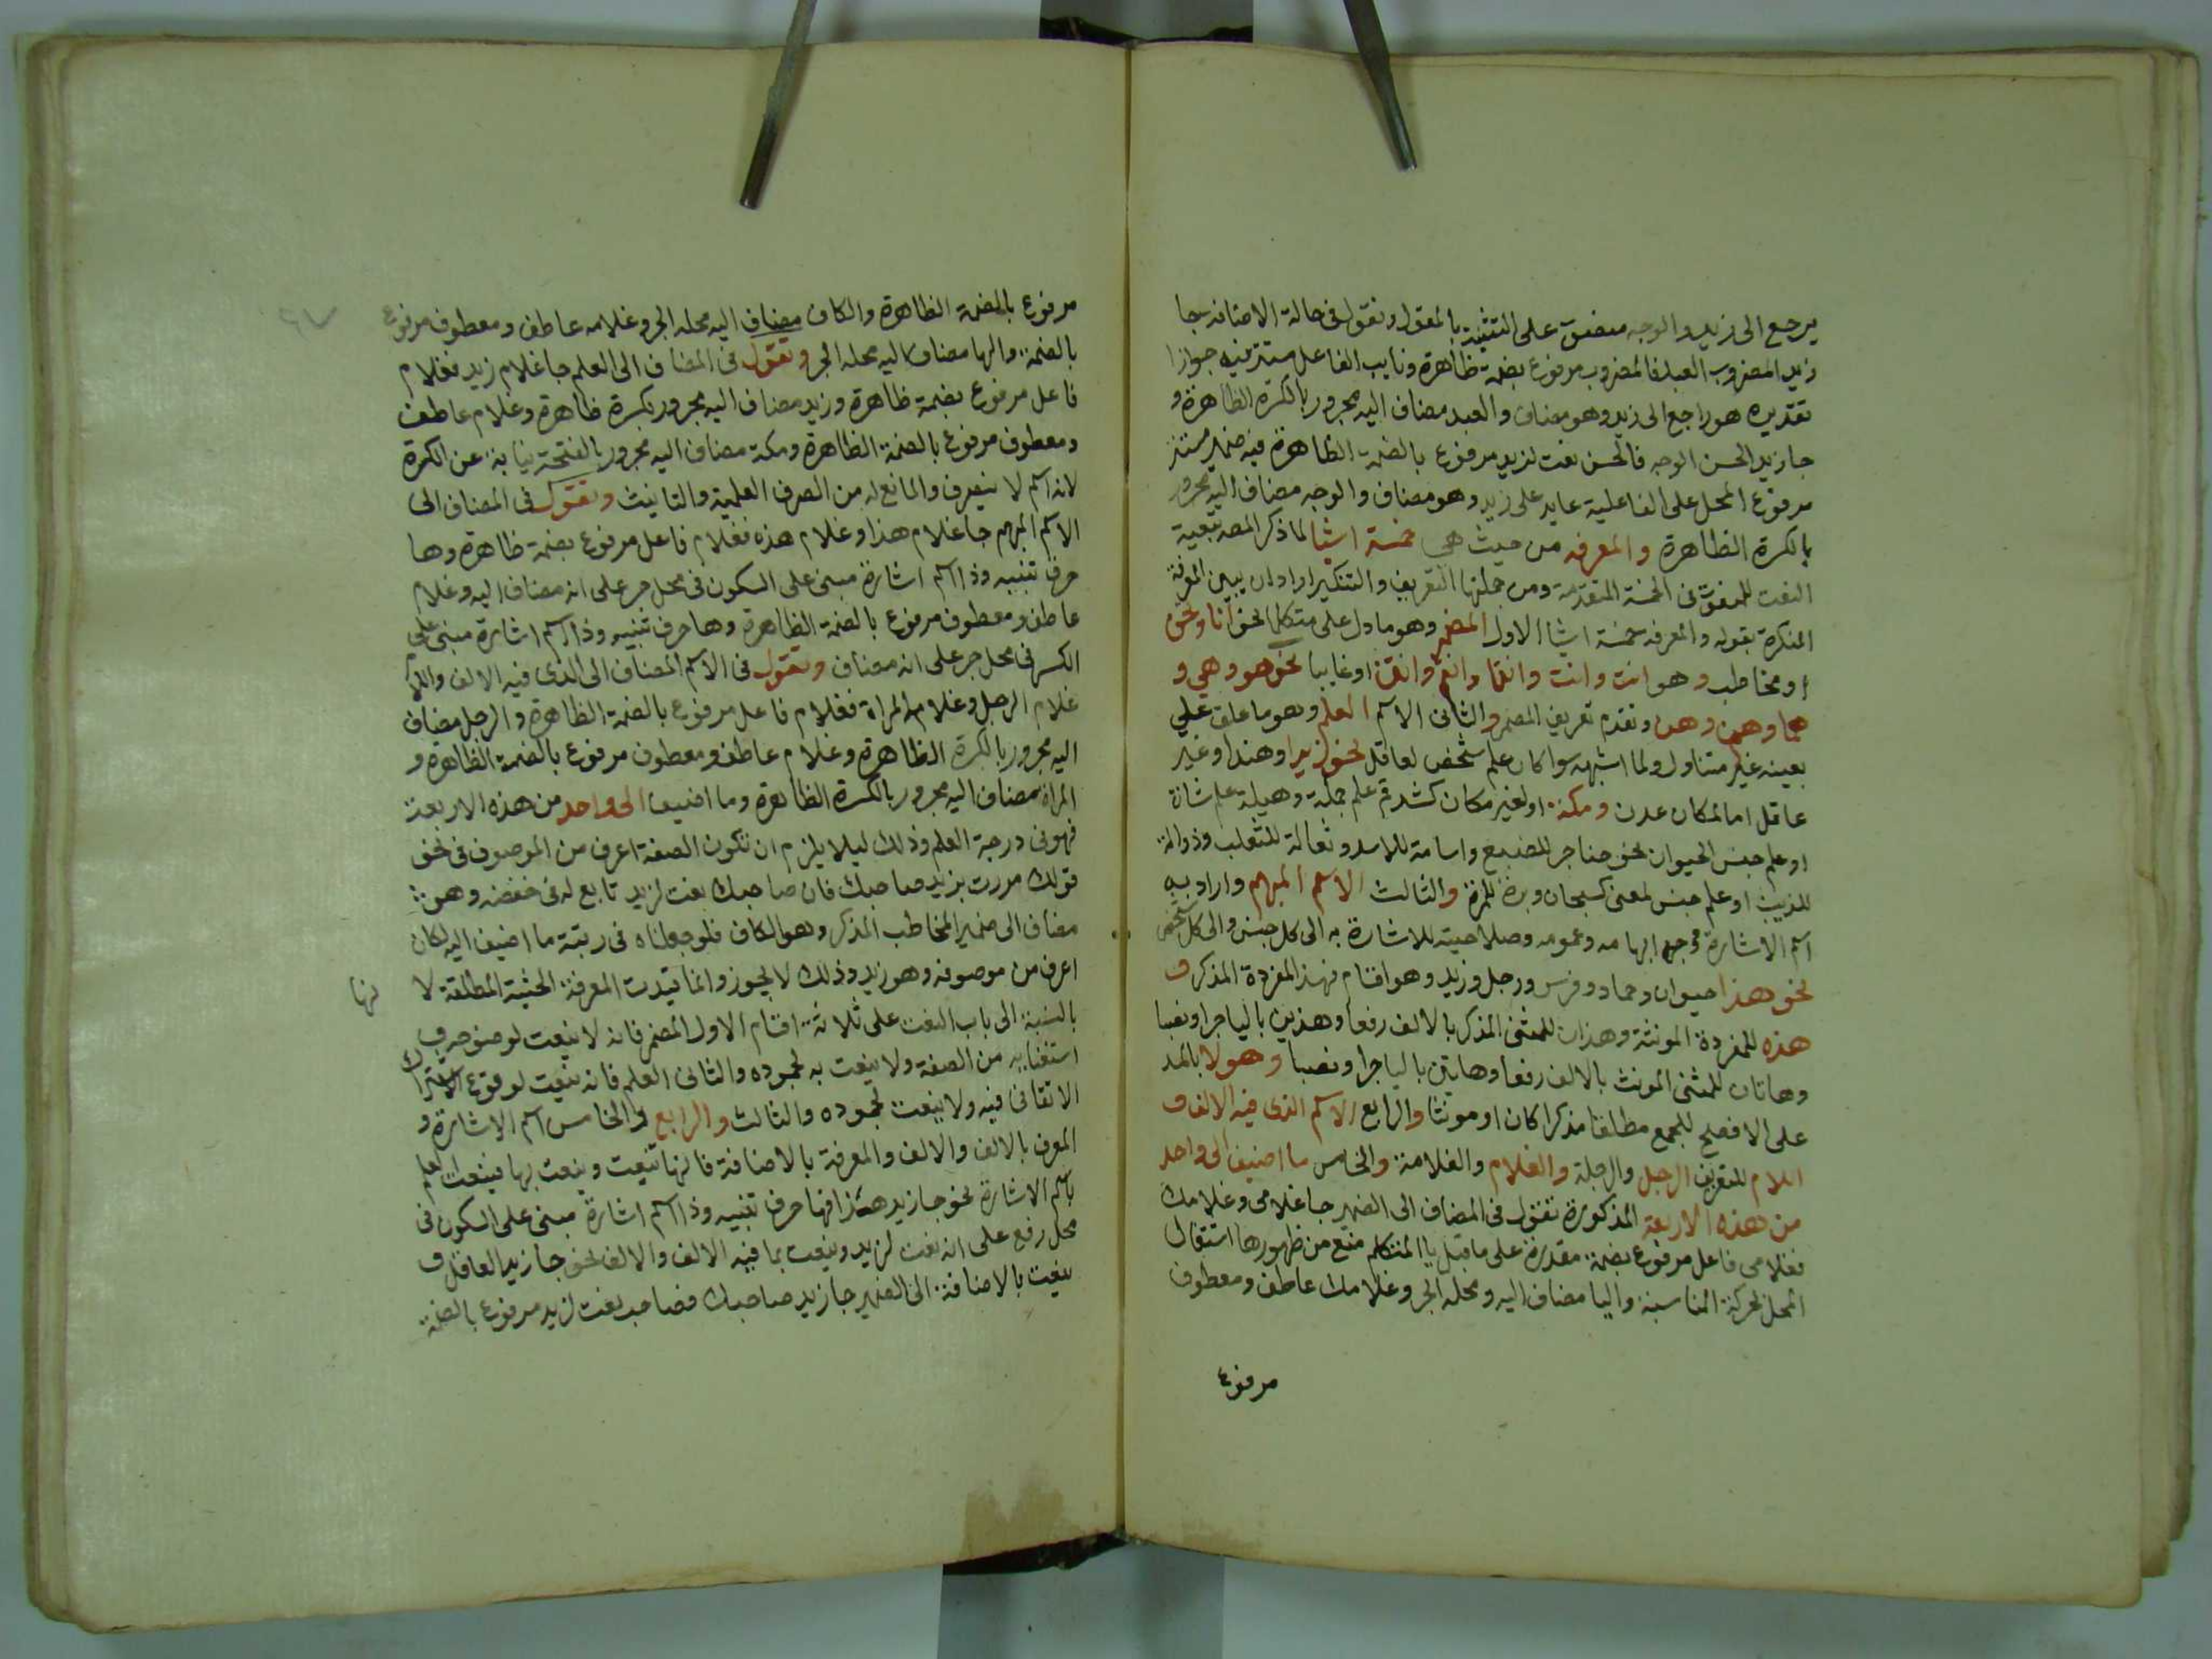 يرجع الى زيد والوجه منصوب على التشبيه بالمفعول وتقول فى حالة الاضافه جا
زيد المضروب العبد فالمضروب مرفوع بضمة ظاهرة ونايب الفاعل مستتر فيه جوازا
تقديره هو راجع الى زيد وهو مضاف والعبد مضاف اليه مجرور بالكسرة الظاهرة و
جا زيد الحسن الوجه فالحسن نعت لزيد مرفوع بالضمة الظاهرة فيه ضمير مستتر
مرفوع المحل على الفاعلية عايد على زيد وهو مضاف والوجه مضاف اليه مجرور
بالكسرة الظاهرة والمعرفه من حيث هي خمسة اشيا لما ذكر المصه تبعية
النعت للمنعوت فى الخمسة المتقدمة ومن جملتها التعريف والتنكير اراد ان يبين المعرفة
النكرة بقوله والمعرفه خمسة اشيا الاول المضمر وهو ما دل على متكلم نحو انا ونحن
او مخاطب وهو انت وانت وانتما وانتم وانتن او غايبا نحو هو وهي و
هما وهم وهن وتقدم تعريف المضمر والثانى الاسم العلم وهو ما علق على
بعينه غير متناول ولما اشبهه سوا كان علم شخص لعاقل نحو زيد او هندا وغير
عاقل اما لمكان عدن ومكة او لغير مكان كشدقم علم جملة وهيلة علم شاة
او علم جنس الحيوان نحو حضاجر للضبع واسامة للاسد وثعالة للثعلب وذوالة
للذيب او علم جنس لمعنى كسبحان وبرة للمبرة والثالث الاسم المبهم واراد به
اسم الاشارة ووجه ابهامه وعمومه وصلاحيته للاشارة به الى كل جنس والى كل شخص
نحو هذا حيوان وجماد وفرس ورجل وزيد وهو اقسام فهذا المفردة المذكر و
هذه للمفردة المونثة وهذان للمثنى المذكر بالالف رفعا وهذين باليا جرا ونصبا
وهاتان للمثنى المونث بالالف رفعا وهاتين باليا جرا ونصبا وهولا بالمد
على الافصح للجمع مطلقا مذكرا كان او مونثا والرابع الاسم الذى فيه الالف و
اللام للتعريف الرجل والرجلة والغلام والغلامة والخامس ما اضيف الى واحد
من هذه الاربعة المذكورة تقول فى المضاف الى الضمير جا غلامى وغلامك
فغلامى فاعل مرفوع بضمة مقدرة على ما قبل يا المتكلم منع من ظهورها استقال
المحل بحركة المناسبة واليا مضاف اليه ومحله الجر وغلامك عاطف ومعطوف
مرفوع
مرفوع بالضمة الظاهرة والكاف مضاف اليه محله الجر وغلامه عاطف ومعطوف مرفوع
بالضمة والها مضاف اليه محله الجر وتقول فى المضاف الى العلم جا غلام زيد فغلام
فاعل مرفوع بضمة ظاهرة وزيد مضاف اليه مجرور بكسرة ظاهرة وغلام عاطف
ومعطوف مرفوع بالضمة الظاهرة ومكة مضاف اليه مجرور بالفتحة نيابة عن الكسرة
لانه اسم لا ينصرف والمانع له من الصرف العلمية والتانيث وتقول فى المضاف الى
الاسم المبهم جا غلام هذا وغلام هذه فغلام فاعل مرفوع بضمة ظاهرة وها
حرف تنبيه وذا اسم اشارة مبنى على السكون فى محل جر على انه مضاف اليه وغلام
عاطف ومعطوف مرفوع بالضمة الظاهرة وها حرف تنبيه وذا اسم اشارة مبنى على
الكسر فى محل جر على انه مضاف وتقول فى الاسم المضاف الى الذى فيه الالف واللام
غلام الرجل وغلام المراة فغلام فاعل مرفوع بالضمة الظاهرة والرجل مضاف
اليه مجرور بالكسرة الظاهرة وغلام عاطف ومعطوف مرفوع بالضمة الظاهرة و
المراة مضاف اليه مجرور بالكسرة الظاهرة وما اضيف الى واحد من هذه الاربعة
فهو فى درجة العلم وذلك ليلا يلزم ان تكون الصفة اعرف من الموصوف فى نحو
قولك مررت بزيد صاحبك فان صاحبك نعت لزيد تابع له فى خفضه وهو
مضاف الى ضمير المخاطب المذكر وهو الكاف فلو جعلناه فى رتبة ما اضيف اليه لكان
اعرف من موصوفه وهو زيد وذلك لا يجوز وانما قيدت المعرفة الحيثية المطلقة لا نها
بالنسبة الى باب النعت على ثلاثة اقسام الاول المضمر فانه لا ينعت لوضوحه و
استغنايه من الصفة ولا ينعت به لجموده والثانى العلم فانه ينعت لوقوع الاشتراك
الاتفاقى فيه ولا ينعت لجموده والثالث والرابع والخامس اسم الاشارة و
المعرف بالالف والالف والمعرفة بالاضافة فانها تنعت وينعت بها فينعت العلم
باسم الاشارة نحو جا زيد هذا فها حرف تنبيه وذا اسم اشارة مبنى على السكون فى
محل رفع على انه نعت لزيد وينعت بما فيه الالف والالف نحو جا زيد العاقل و
ينعت بالاضافة الى الضمير جا زيد صاحبك فصاحب نعت لزيد مرفوع بالضمة